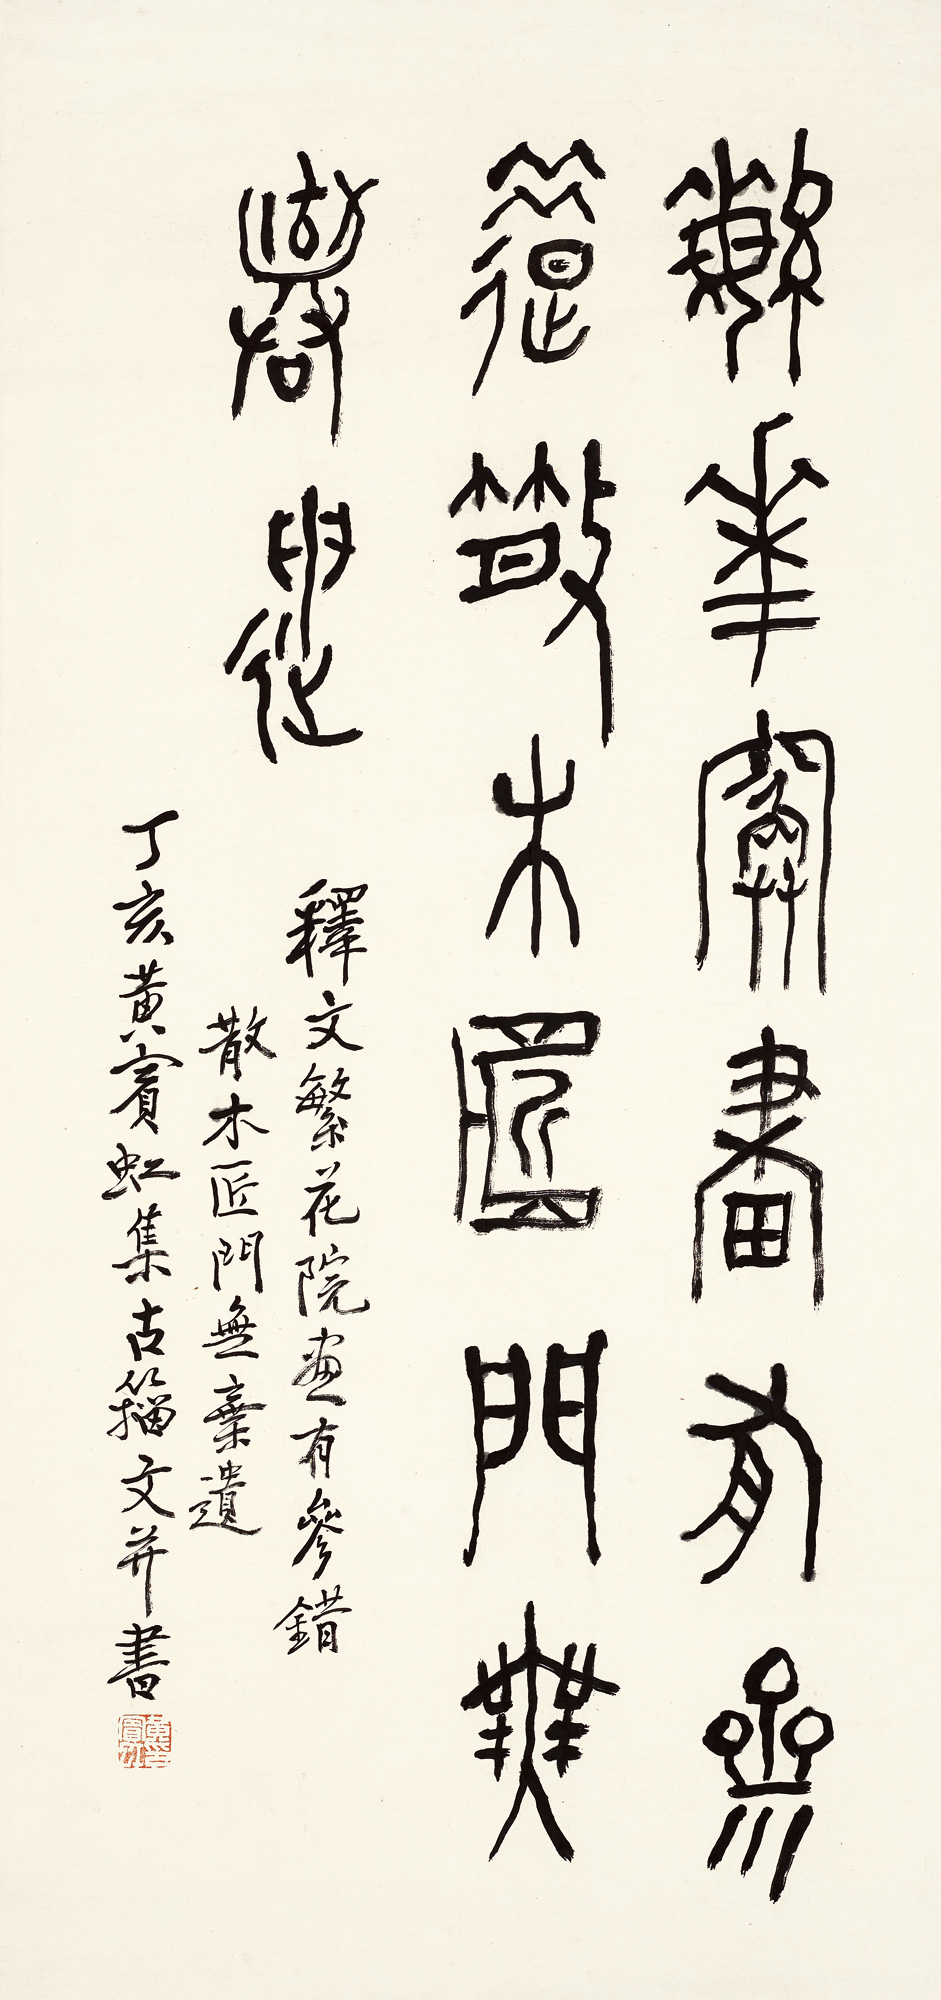 繁花院畫有參
錯散木匠門無
棄遺
釋文繁花院畫有參錯
散木匠門無棄遺
丁亥黃賓虹集古籀文并書